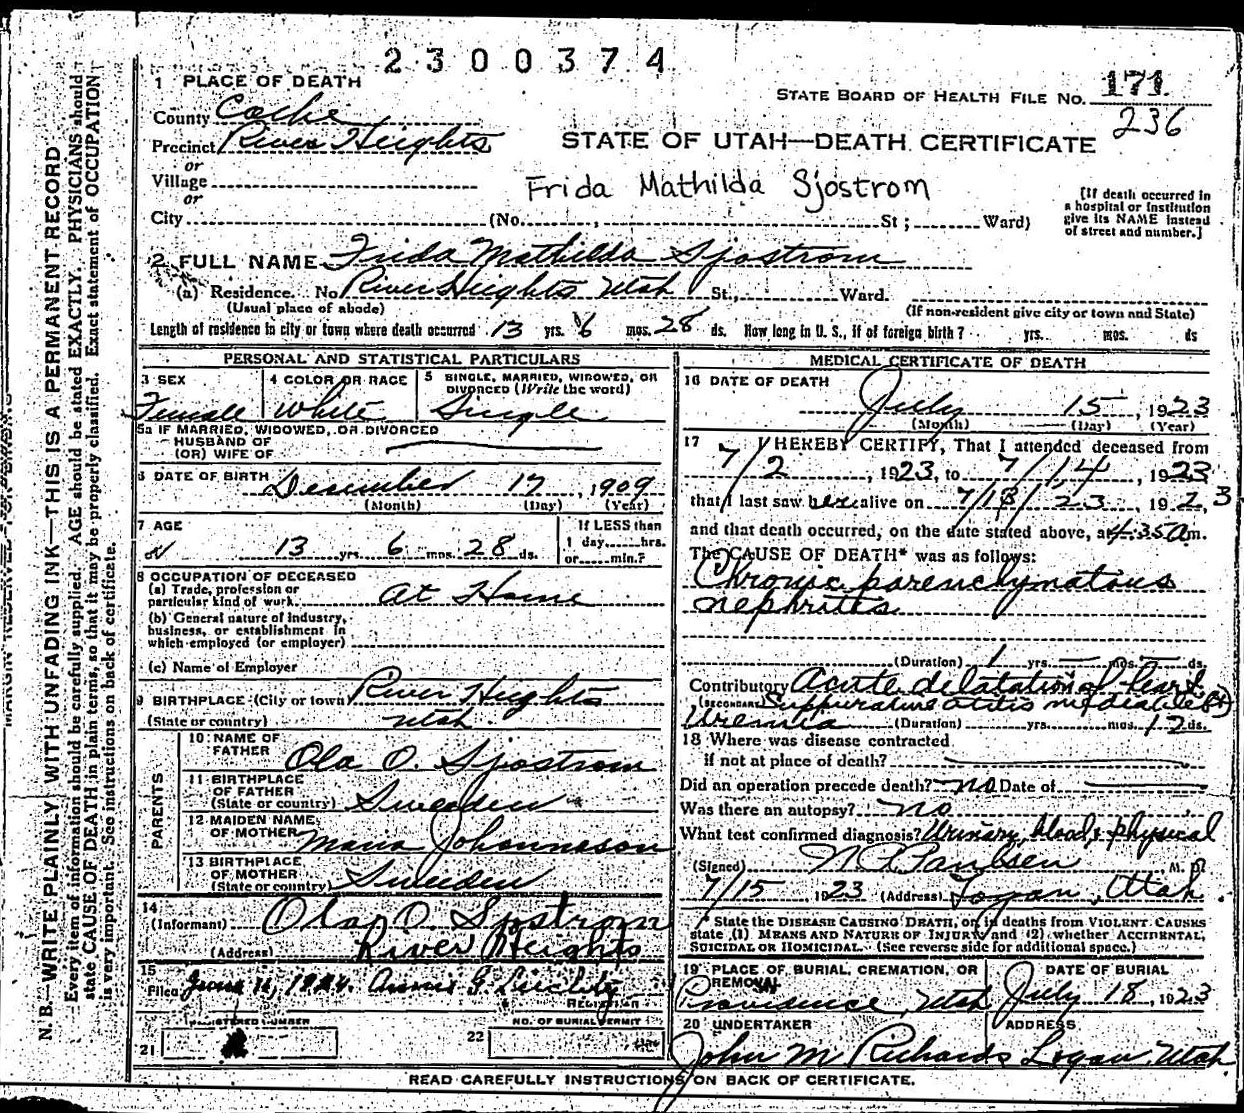 2300374
1 PLACE OF DEATH
STATE BOARD OF HEALTH FILE NO. 171
236
County Cache
Precinct River Heights
STATE OF UTAH—DEATH CERTIFICATE
or
Village
Frida Mathilda Sjostrom
or
City (No. , St ; Ward)
[If death occurred in
a hospital or institution
give its NAME instead
of street and number.]
2 FULL NAME Frida Mathilda Sjostrom
(a) Residence. No River Heights Utah St., Ward.
(Usual place of abode) (If non-resident give city or town and State)
Length of residence in city or town where death occurred 13 yrs. 6 mos. 28 ds. How long in U. S., if of foreign birth? yrs. mos. ds
PERSONAL AND STATISTICAL PARTICULARS
3 SEX 4 COLOR OR RACE 5 SINGLE, MARRIED, WIDOWED, OR
DIVORCED (Write the word)
Female White Single
5a IF MARRIED, WIDOWED, OR DIVORCED
HUSBAND OF
(OR) WIFE OF
6 DATE OF BIRTH December 17, 1909
(Month) (Day) (Year)
7 AGE If LESS than
1 day,......hrs.
13 yrs. 6 mos. 28 ds. or......min.?
8 OCCUPATION OF DECEASED
(a) Trade, profession or
particular kind of work. At Home
(b) General nature of Industry,
business, or establishment in
which employed (or employer)
(c) Name of Employer
9 BIRTHPLACE (City or town) River Heights
(State or country) Utah
PARENTS
10 NAME OF
FATHER Ola O. Sjostrom
11 BIRTHPLACE
OF FATHER
(State or country) Sweden
12 MAIDEN NAME
OF MOTHER Maria Johanneson
13 BIRTHPLACE
OF MOTHER
(State or country) Sweden
14
(Informant) Ola O. Sjostrom
(Address) River Heights
15
Filed June 11, 1924. G.
REGISTERED NUMBER NO. OF BURIAL PERMIT
21 22
MEDICAL CERTIFICATE OF DEATH
16 DATE OF DEATH
July 15, 1923
(Month) (Day) (Year)
17 I HEREBY CERTIFY, That I attended deceased from
7/2, 1923, to 7/14, 1923
that I last saw her alive on 7/13/23 1923
and that death occurred, on the date stated above, at 4:35 A m.
The CAUSE OF DEATH* was as follows:
Chronic parenchymatous
nephritis
(Duration) 1 yrs. — mos. — ds.
Contributory Acute delatation of heart
(SECONDARY) Suppurative otitis media
Uremia (Duration) yrs. mos. 12 ds.
18 Where was disease contracted
if not at place of death?
Did an operation precede death? no Date of
Was there an autopsy? no
What test confirmed diagnosis? Urinary, blood, & physical
(Signed) M. D.
7/15 1923 (Address) Logan, Utah
* State the DISEASE CAUSING DEATH, or, in deaths from VIOLENT CAUSES
state (1) MEANS AND NATURE OF INJURY and (2) whether ACCIDENTAL,
SUICIDAL OR HOMICIDAL. (See reverse side for additional space.)
19 PLACE OF BURIAL, CREMATION, OR DATE OF BURIAL
REMOVAL
Providence, Utah July 18, 1923
20 UNDERTAKER ADDRESS
John M Richards Logan, Utah
READ CAREFULLY INSTRUCTIONS ON BACK OF CERTIFICATE.
N. B.—WRITE PLAINLY WITH UNFADING INK—THIS IS A PERMANENT RECORD
Every item of information should be carefully supplied. AGE should be stated EXACTLY. PHYSICIANS should
state CAUSE OF DEATH in plain terms, so that it may be properly classified. Exact statement of OCCUPATION
is very important. See instructions on back of certificate.